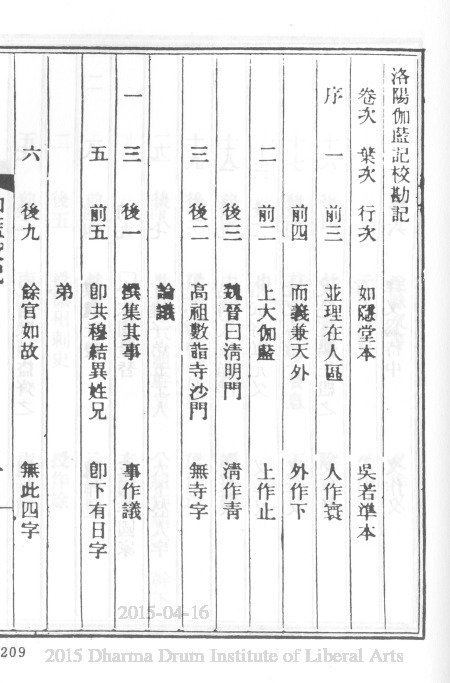 洛陽伽藍記校勘記
卷次 葉次 行次 如隱堂本 吳若準本
序 一 前三 並理在人區 人作寰
前四 而義兼天外 外作下
二 前二 上大伽藍 上作止
後三 魏晉曰清明門 清作青
三 後二 高祖數詣寺沙門 無寺字
論議
一 三 後一 撰集其事 事作議
五 前五 卽共穆結異姓兄 卽下有日字
弟
六 後九 餘官如故 無此四字
209
2015-04-16
2015 Dharma Drum Institute of Liberal Arts